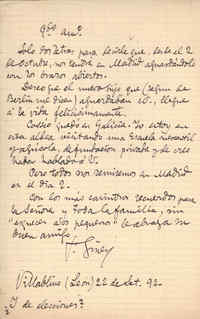 Qdo amo.
Solo dos letras para decirle que, desde el 2
de Octubre, me tendrá en Madrid aguardándole
con los brazos abiertos.
Deseo que el nuevo hijo que (segun de
Berlin me dicen) aguardaban Vs. llegue
á la vida felicísimamente.
Cossío quedó en Galicia. Yo estoy en
esta aldea visitando una Escuela mercantil
y agrícola, de fundacion privada y de que
habrá hablado á V.
Pero todos nos reuniremos en Madrid
en el día 2.
Con los más cariñosos recuerdos para
la Señora y toda la familia, sin
pequeños" le abraza su
buen amigo
F. Giner
Villablino (Leon) 22 de Set. 92
¿Y de elecciones?